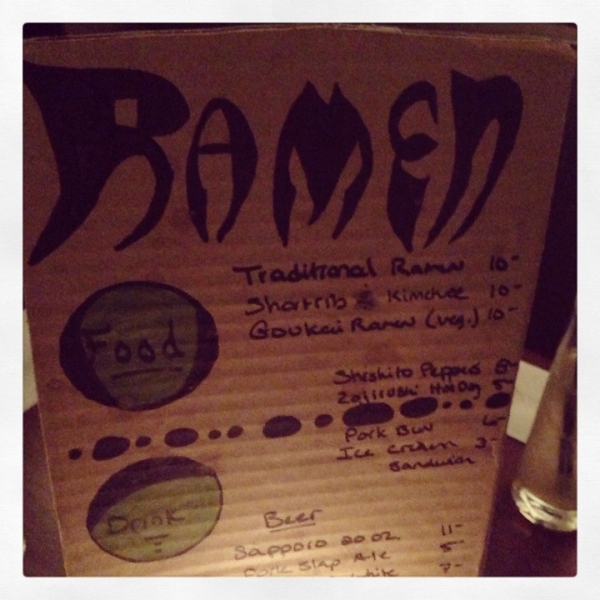 RAMEN
Traditional Ramen 10-
Shortrib & Kimchee 10-
Goukai Ramen (veg.) 10-
Food
Shishito Peppers
Hot Dog 5-
Pork Bun
Ice Cream 3-
Sandwich
Drink
Beer
Sapporo 20 oz. 11-
Pork Slap Ale 5-
White 7-